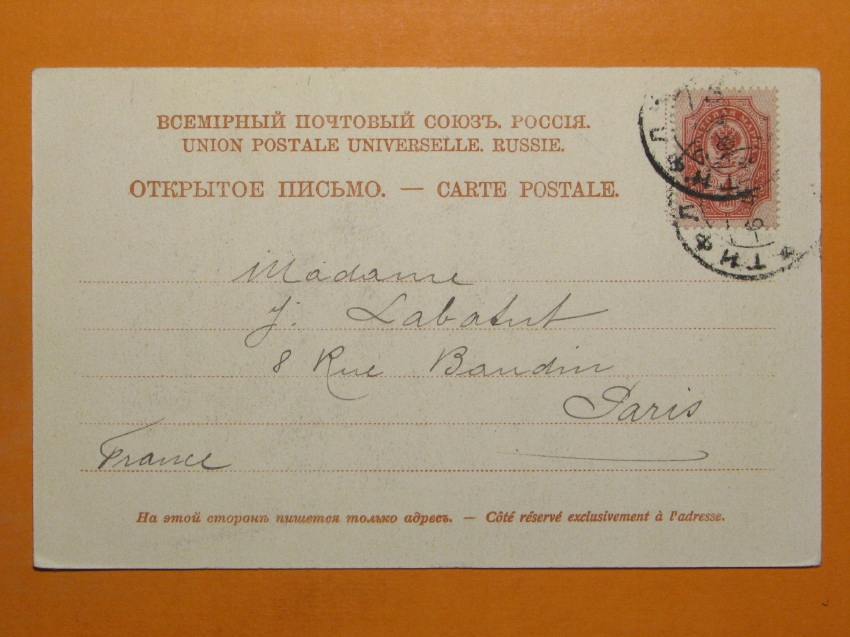 ВСЕМІРНЫЙ ПОЧТОВЫЙ СОЮЗЪ. РОССІЯ.
UNION POSTALE UNIVERSELLE. RUSSIE.
ОТКРЫТОЕ ПИСЬМО. — CARTE POSTALE.
Madame
J. Labatut
8 Rue Baudin
Paris
France
На этой сторонѣ пишется только адресъ. — Côté réservé exclusivement à l'adresse.